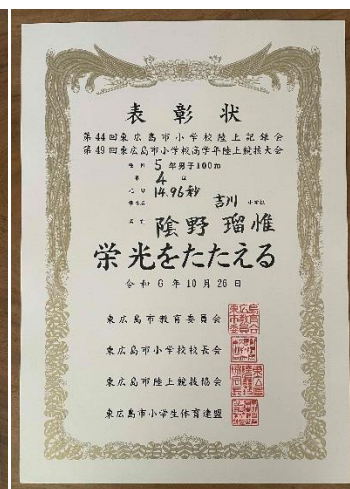 表彰状
第44回東広島市小学校陸上記録会
第49回東広島市小学校高学年陸上競技大会
種目 5年男子100m
第 4 位
記録 14.96秒
学校名 吉川 小学校
氏名 陰野 瑠惟
栄光をたたえる
令和6年10月26日
東広島市教育委員会
東広島市小学校校長会
東広島市陸上競技協会
東広島市小学生体育連盟